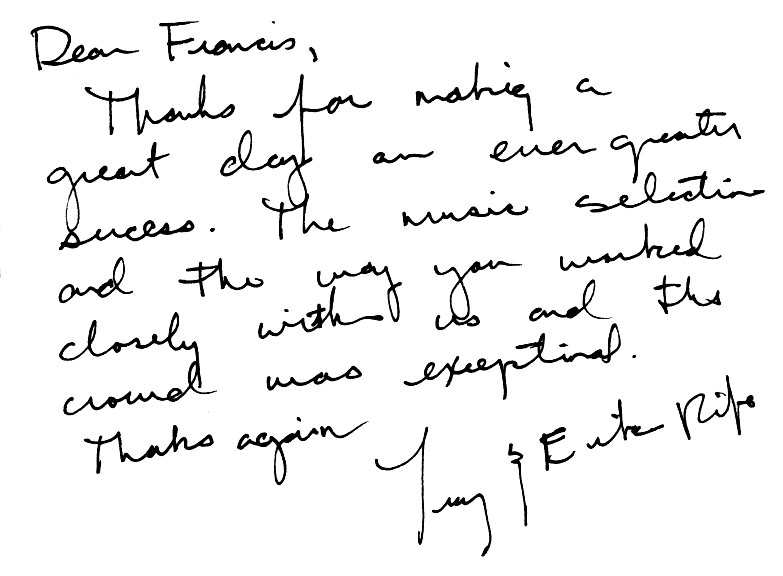 Dear Francis,
Thanks for making a
great day an even greater
sucess. The music selection
and the way you worked
closely with us and the
crowd was exceptional.
Thanks again
&